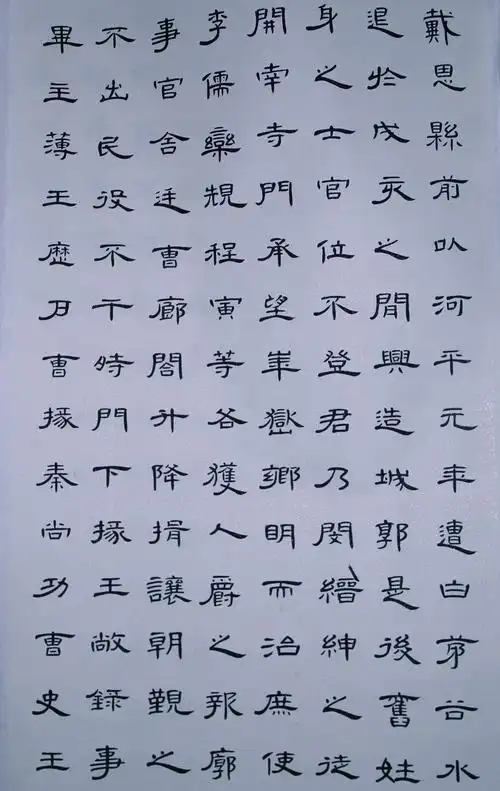 戴恩縣前以河平元年遭白茅谷水
退於戌亥之間興造城郭是後舊姓
身之士官位不登君乃閔縉紳之徒
開南寺門承望華嶽鄉明而治庶使
李儒欒規程寅等各獲人爵之報廓
事官舍廷曹廊閣升降揖讓朝覲之
不出民役不干時門下掾王敞錄事
畢主薄王歷戶曹掾秦尚功曹史王